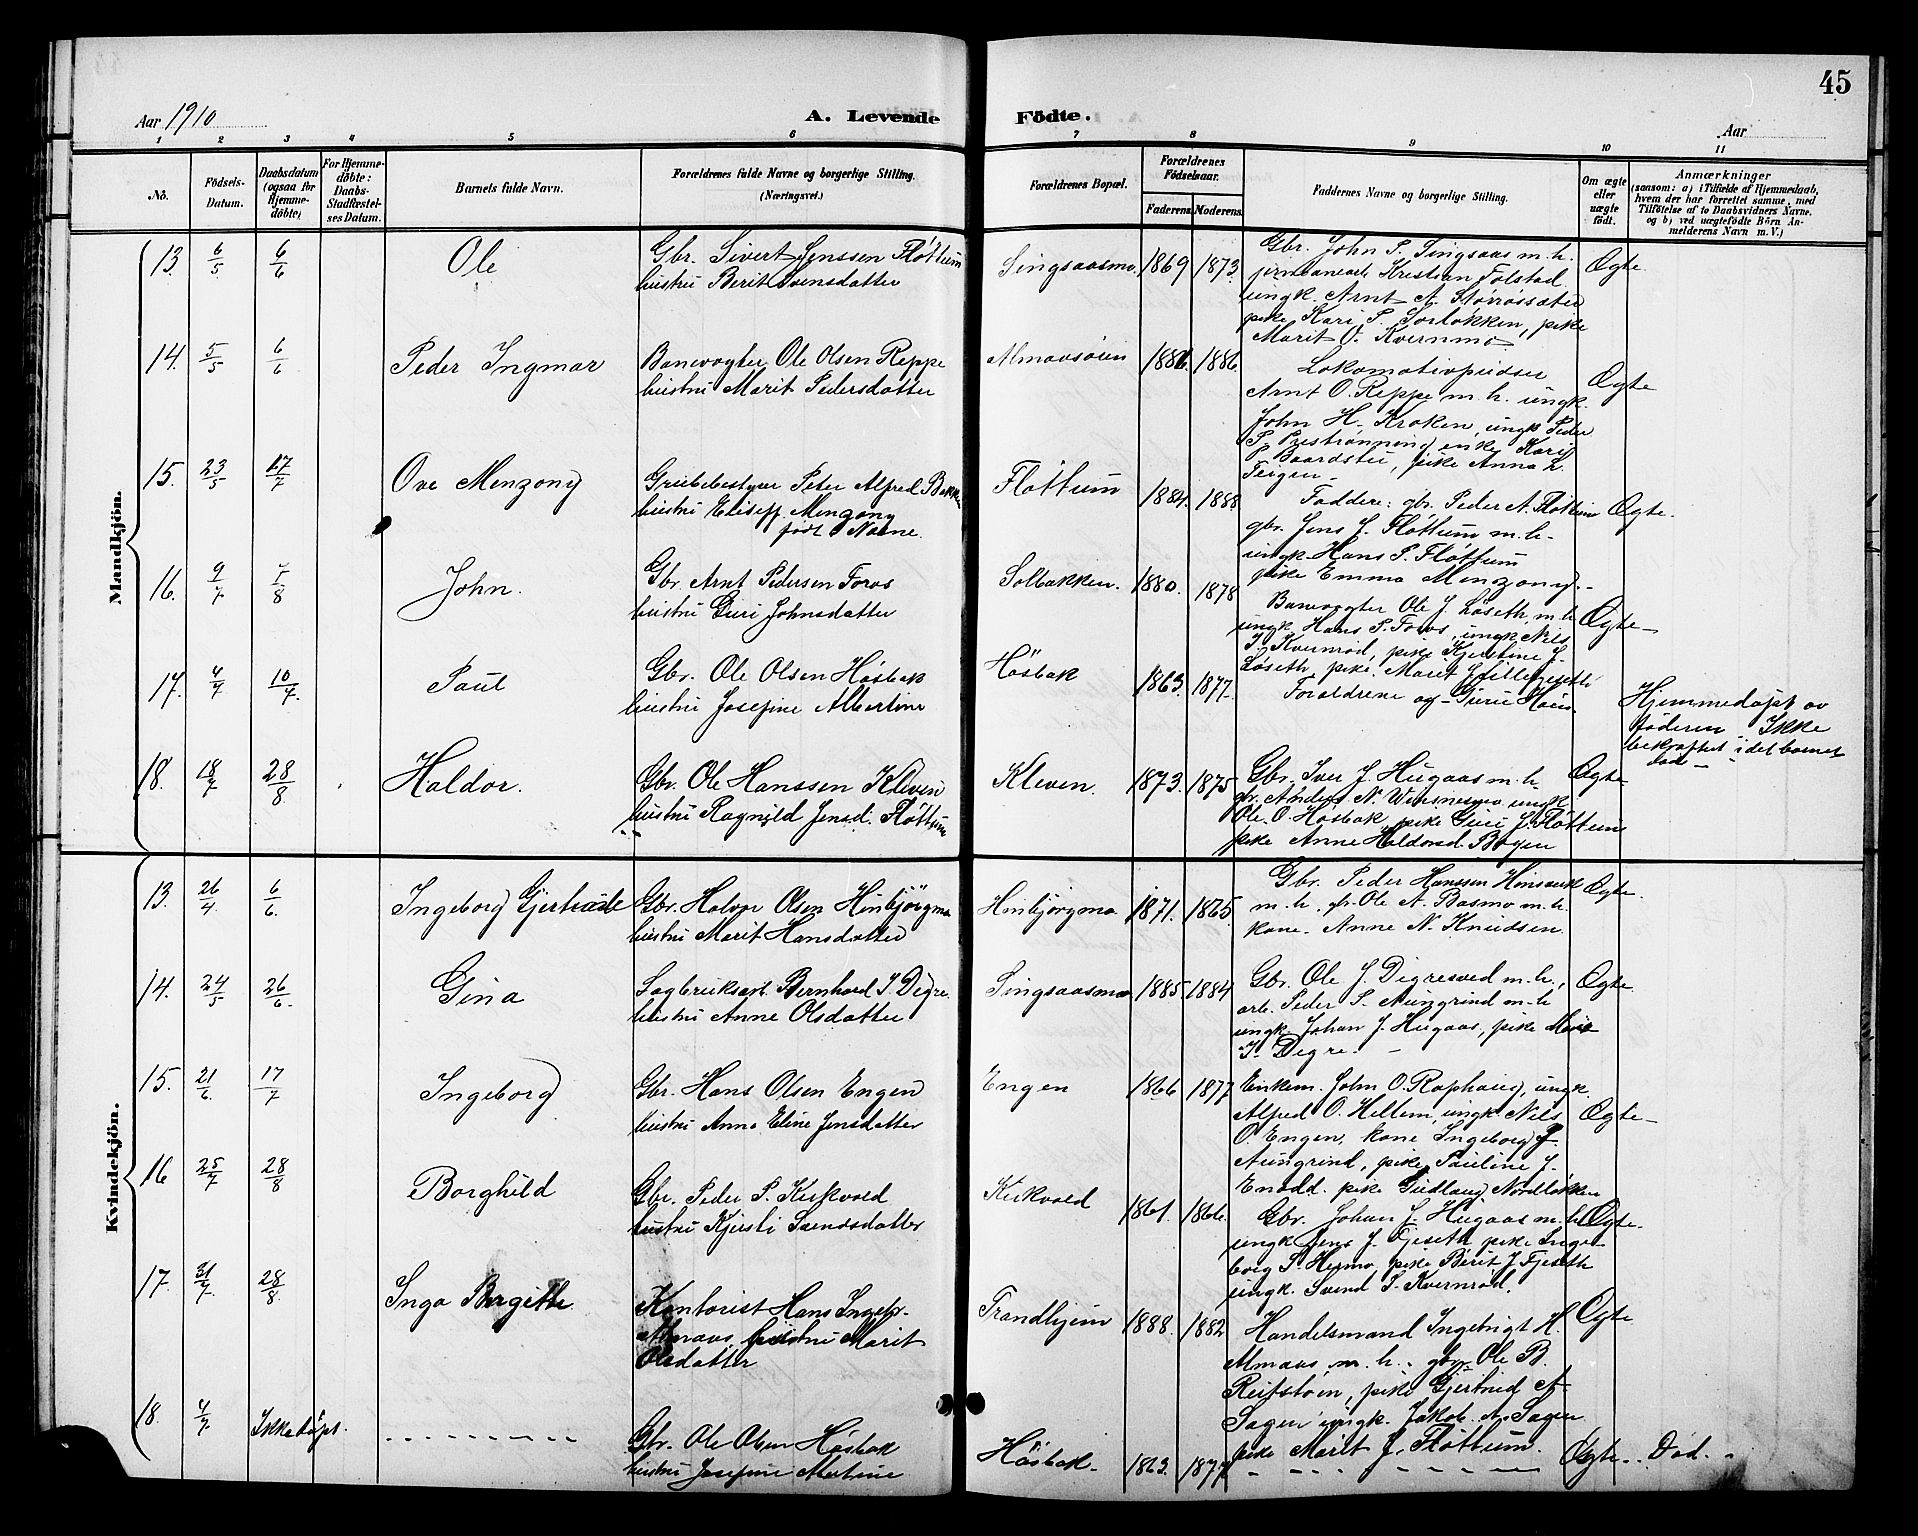 45
Aar 1910
A. Levende
Födte.
Aar
1 2 3 4 5 6 7 8 9 10 11
No.
Födsels-Datum.
Daabsdatum (ogsaa for Hjemmedøbte)
For Hjemmedøbte: Daabs-Stadfæstelses Datum.
Barnets fulde Navn.
Forældrenes fulde Navne og borgerlige Stilling.
(Næringsvei.)
Forældrenes Bopæl.
Forældrenes Fødselsaar.
Faderens. Moderens.
Faddernes Navne og borgerlige Stilling.
Om ægte eller uægte født.
Anmærkninger
(saasom: a) i Tilfælde af Hjemmedaab, hvem der har forrettet samme, med Tilföielse af to Daabsvidners Navne, og b) ved uægtefödte Börn Anmelderens Navn m. V.)
Mandkjön.
13. 6/5 6/6 Ole
Gbr. Sivert Jenssen Fløttum
hustru Berit Svensdatter
Singsaasmo 1869 1873.
Gbr. John P. Singsaas m. h.
Kristian Folstad
ungk. Arnt A. Størrøssæter
pike Kari P. Sorløkken, pike
Marit O. Kvernmo
Ægte
14. 5/5 6/6 Peder Ingmar
Banevogter Ole Olsen Reppe
hustru Marit Pedersdatter
Almaasøien 1886.
Lokomotivpudser
Arnt O. Reppe m. h. ungk.
John H. Kroken, ungk Peder
P. Prestrønnen, enke Kari
P. Baardstu, pike Anna L.
Teigen
Ægte
15. 23/5 17/7 Ove Menzony
Grubebestyrer Peter Alfred Bakke
hustru Eliseff Menzony
født Narne.
Fløttum 1884. 1888.
Faddere: gbr. Peder A. Fløttum
gbr. Jens J. Fløttum m. h.
ungk Hans P. Fløttum
pike Emma Menzony.
Ægte.
16. 9/7 7/8 John.
Gbr. Arnt Pedersen Foros
hustru Guri Johnsdatter
Solbakken. 1880. 1878
Banevogter Ole J. Løseth, m. h
ungk. Hans P. Foros, ungk Nils
J. Kvernrød, pike Kjerstine J.
Løseth, pike. Marit
Ægte
17. 4/7 10/7. Paul
Gbr. Ole Olsen Høsbak
hustru Josefine Albertine
Høsbak 1863. 1877.
Forældrene og Guru Høus.
Hjemmedøpt av
faderen Ikke
bekræftet idet barnet
død
18. 18/7 28/8 Haldor.
Gbr. Ole Hanssen Kleven
hustru Ragnild Jensd. Fløttum
Kleven. 1873. 1875
Gbr. Iver J. Hugaas m. h.
gbr. Anders N. Winsnesmo ungk
Ole. O. Høsbak, pike Guri J. Fløttum
pike Anne Haldorsd. Bogen
Ægte
Kvindekjön.
13. 26/4 6/6. Ingeborg Gjertrude
Gbr. Halvor Olsen Hinbjörgmo
hustru Marit Hansdatter
Hinbjørgmo 1871. 1865.
Gbr. Peder Hanssen
m. h, gbr. Ole A. Basmo m. h.
kone. Anne N. Knudsen.
Ægte.
14. 24/5 26/6. Gina
Sagbruksarb. Bernhard I. Digre.
hustru Anne Olsdatter
Singsaasmo 1885 1884
Gbr. Ole J. Digresved m. h.,
arb. Peder P. Aungrind m. h
ungk. Johan J. Hugaas, pike
I. Digre.
Ægte.
15. 21/6 17/7 Ingeborg
Gbr. Hans Olsen Engen
hustru Anna Eline Jensdatter
Engen 1866 1877
Enkem. John O. Raphaug, ungk.
Alfred O. Hillem, ungk. Nils
O. Engen, kone Ingeborg J.
Aungrind, pike Pauline J.
Enodd. pike Gudlaug Nordløkken
Ægte
16 25/7 28/8 Borghild
Gbr. Peder P. Kirkvold
hustru Kjersti Svendsdatter
Kirkvold 1861. 1866.
Gbr. Johan J. Hugaas m. h
ungk Jens J. Fjeseth pike Inge
borg S Hermo, pike Berit J Fjeseth
ungk. Svend S. Kvernrød.
Ægte.
17. 31/7 28/8 Inga Bergitte
Kontorist Hans Ingebr.
Almaas, hustru Marit
Olsdatter
Trondhjem 1888. 1882
Handelsmand Ingebrigt H.
Almaas m. h., gbr. Ole B.
Reitstøen, pike Gjertrud A.
Sagen ungk. Jakob. A. Sagen
pike Marit J. Fløttum.
Ægte
18. 4/7 Ikke døpt.
Gbr. Ole Olsen Høsbak
hustru Josefine
Høsbak. 1863. 1877
Ægte.. Død.